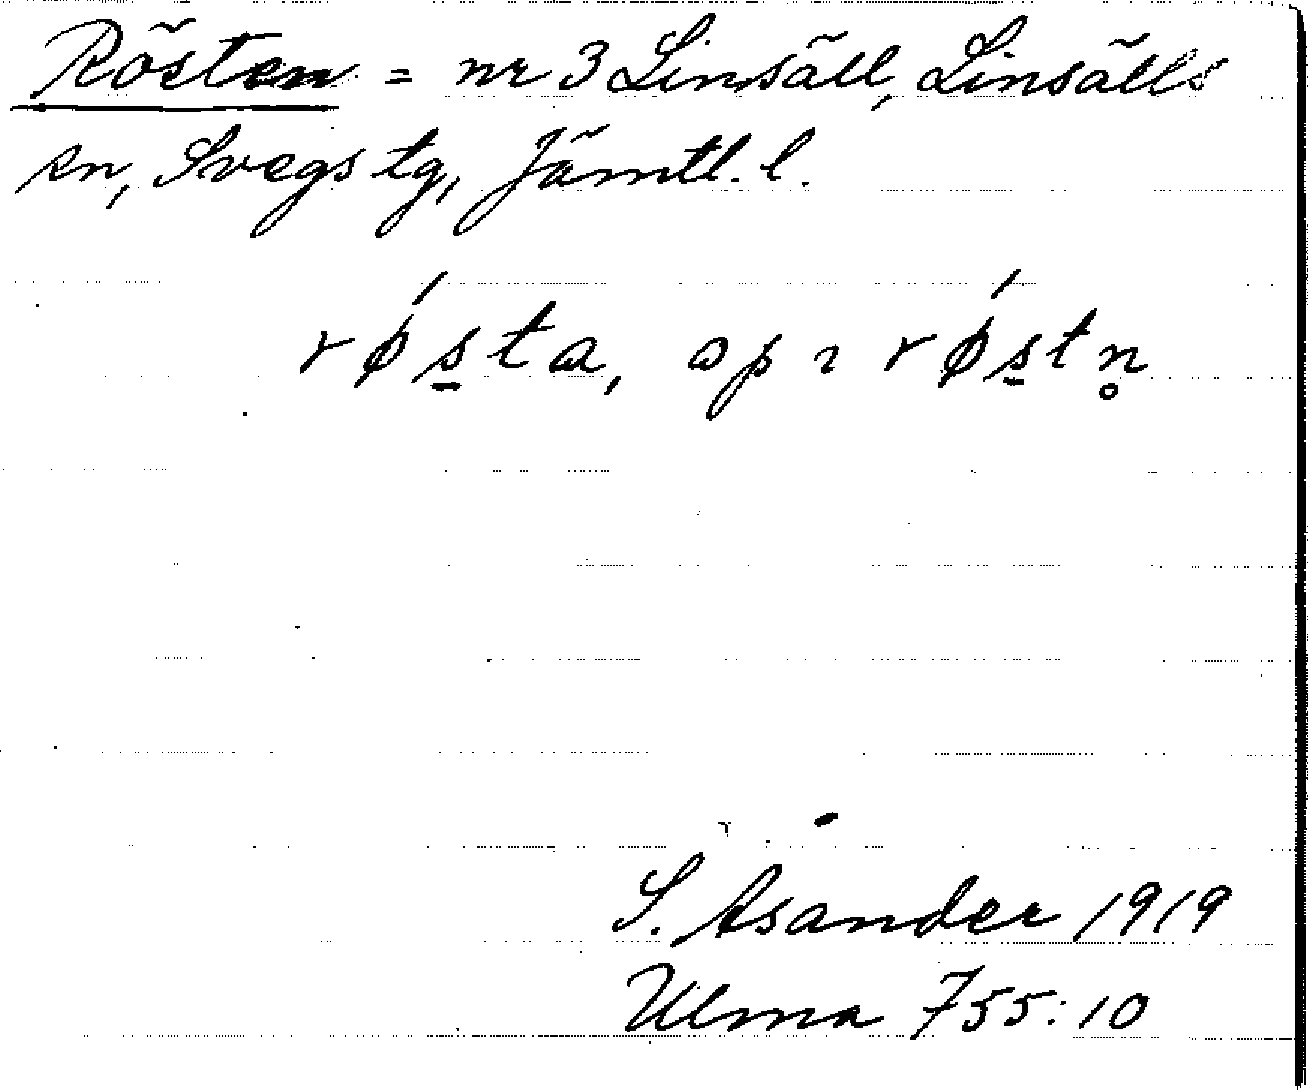 Rösten = nr 3 Linsäll, Linsälls
sn, Svegs tg, Jämtl. l.
røʹs̲ta, op ı røʹs̲tn̥
S. Åsander 1919
Ulma 755:10